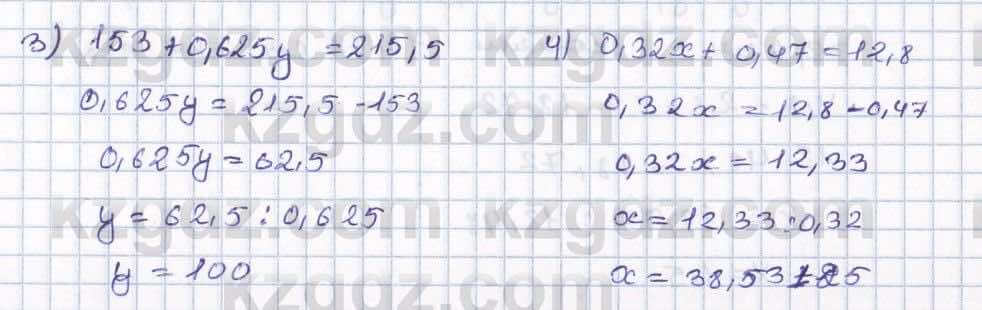 3) 153 + 0,625y = 215,5
0,625y = 215,5 - 153
0,625y = 62,5
y = 62,5 : 0,625
y = 100
4) 0,32x + 0,47 = 12,8
0,32x = 12,8 - 0,47
0,32x = 12,33
x = 12,33 : 0,32
x = 38,53125
kzgdz.com
kzgdz.com
kzgdz.com
kzgdz.com
kzgdz.com
kzgdz.com